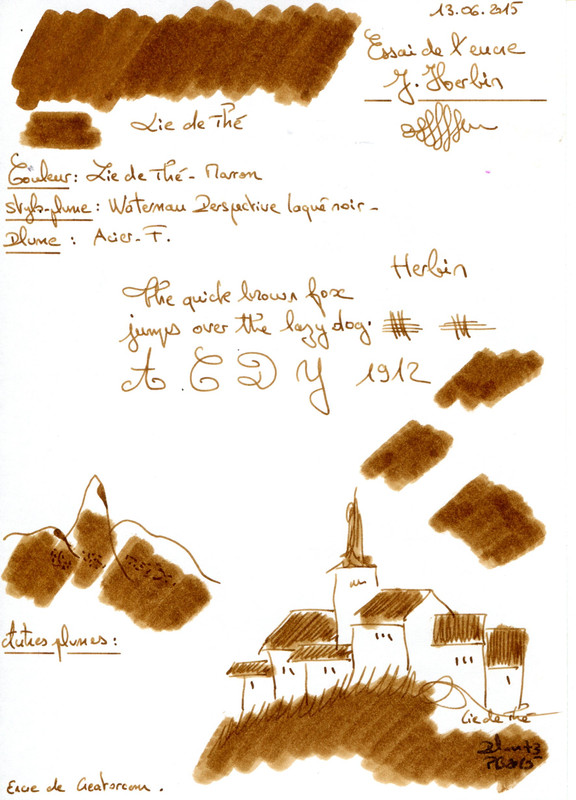 13.06.2015
Essai de l'encre
J. Herbin
Lie de Thé
Couleur : Lie de Thé - Marron
Stylo-plume : Waterman Perspective laqué noir -
Plume : Acier - F.
Herbin
The quick brown fox
jumps over the lazy dog.
A C D Y 1912
Autres plumes :
Lie de Thé
PB2015
Encre de